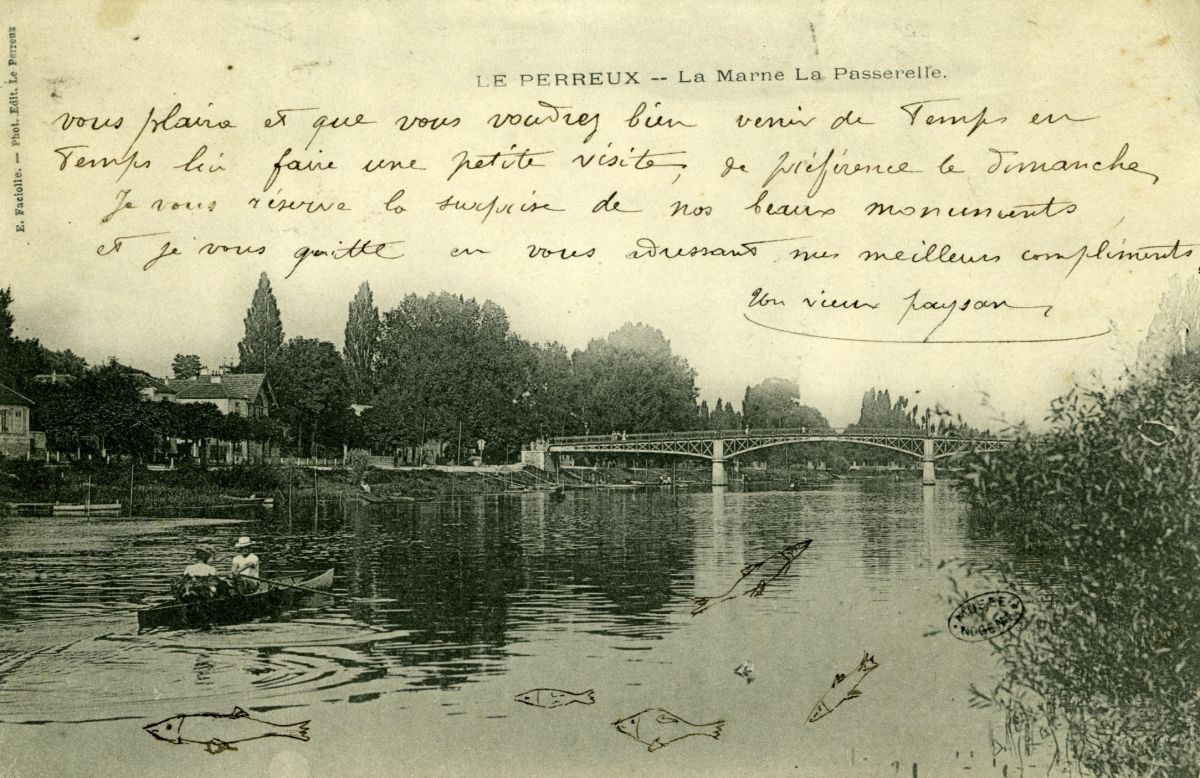 E. Faciolle. — Phot. Edit. Le Perreux
LE PERREUX -- La Marne La Passerelle.
vous plaira et que vous voudrez bien venir de Temps en
Temps lui faire une petite visite, de préférence le dimanche,
Je vous réserve la surprise de nos beaux monuments,
et je vous quitte en vous adressant mes meilleurs compliments,
Un vieux paysan,
MUSÉE
NOGENT